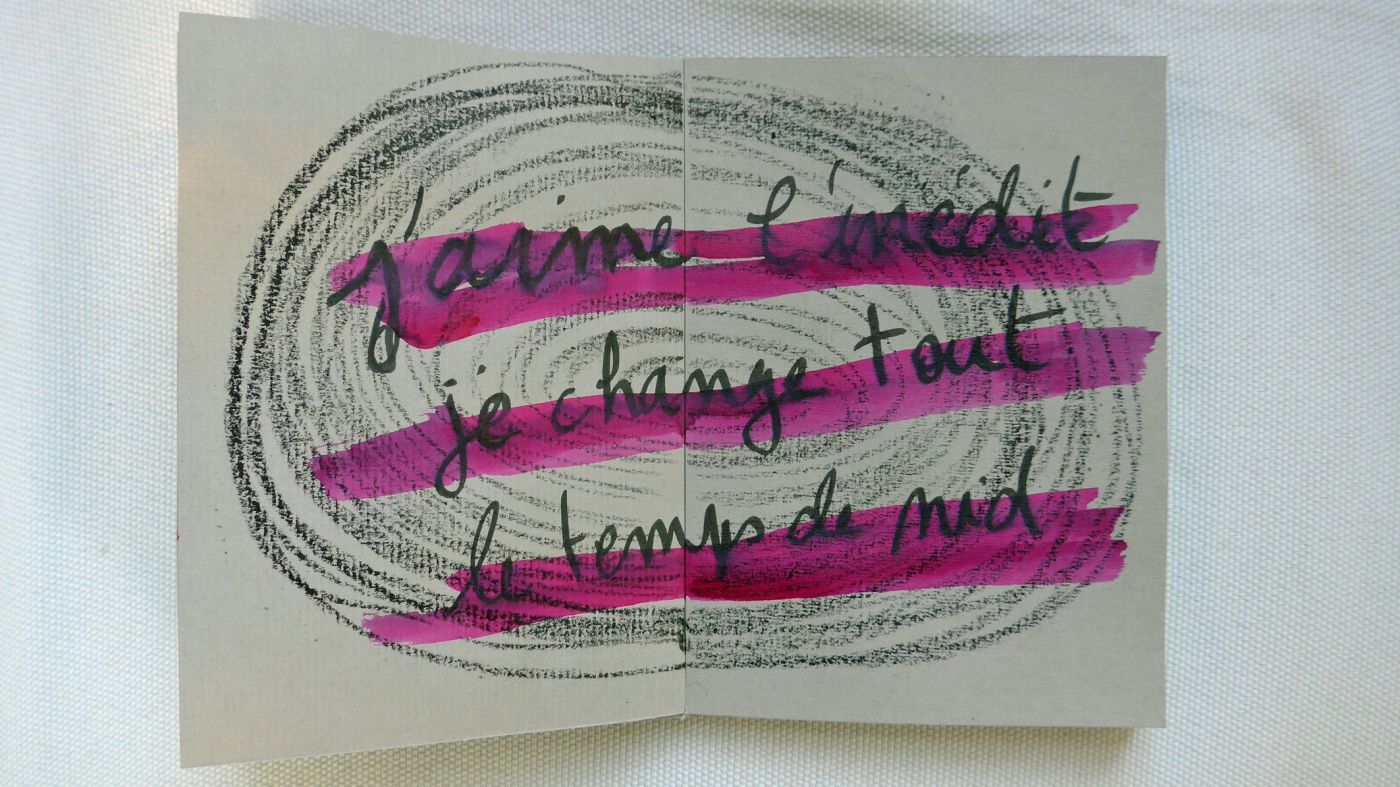 j'aime l'inédit
je change tout
le temps de nid